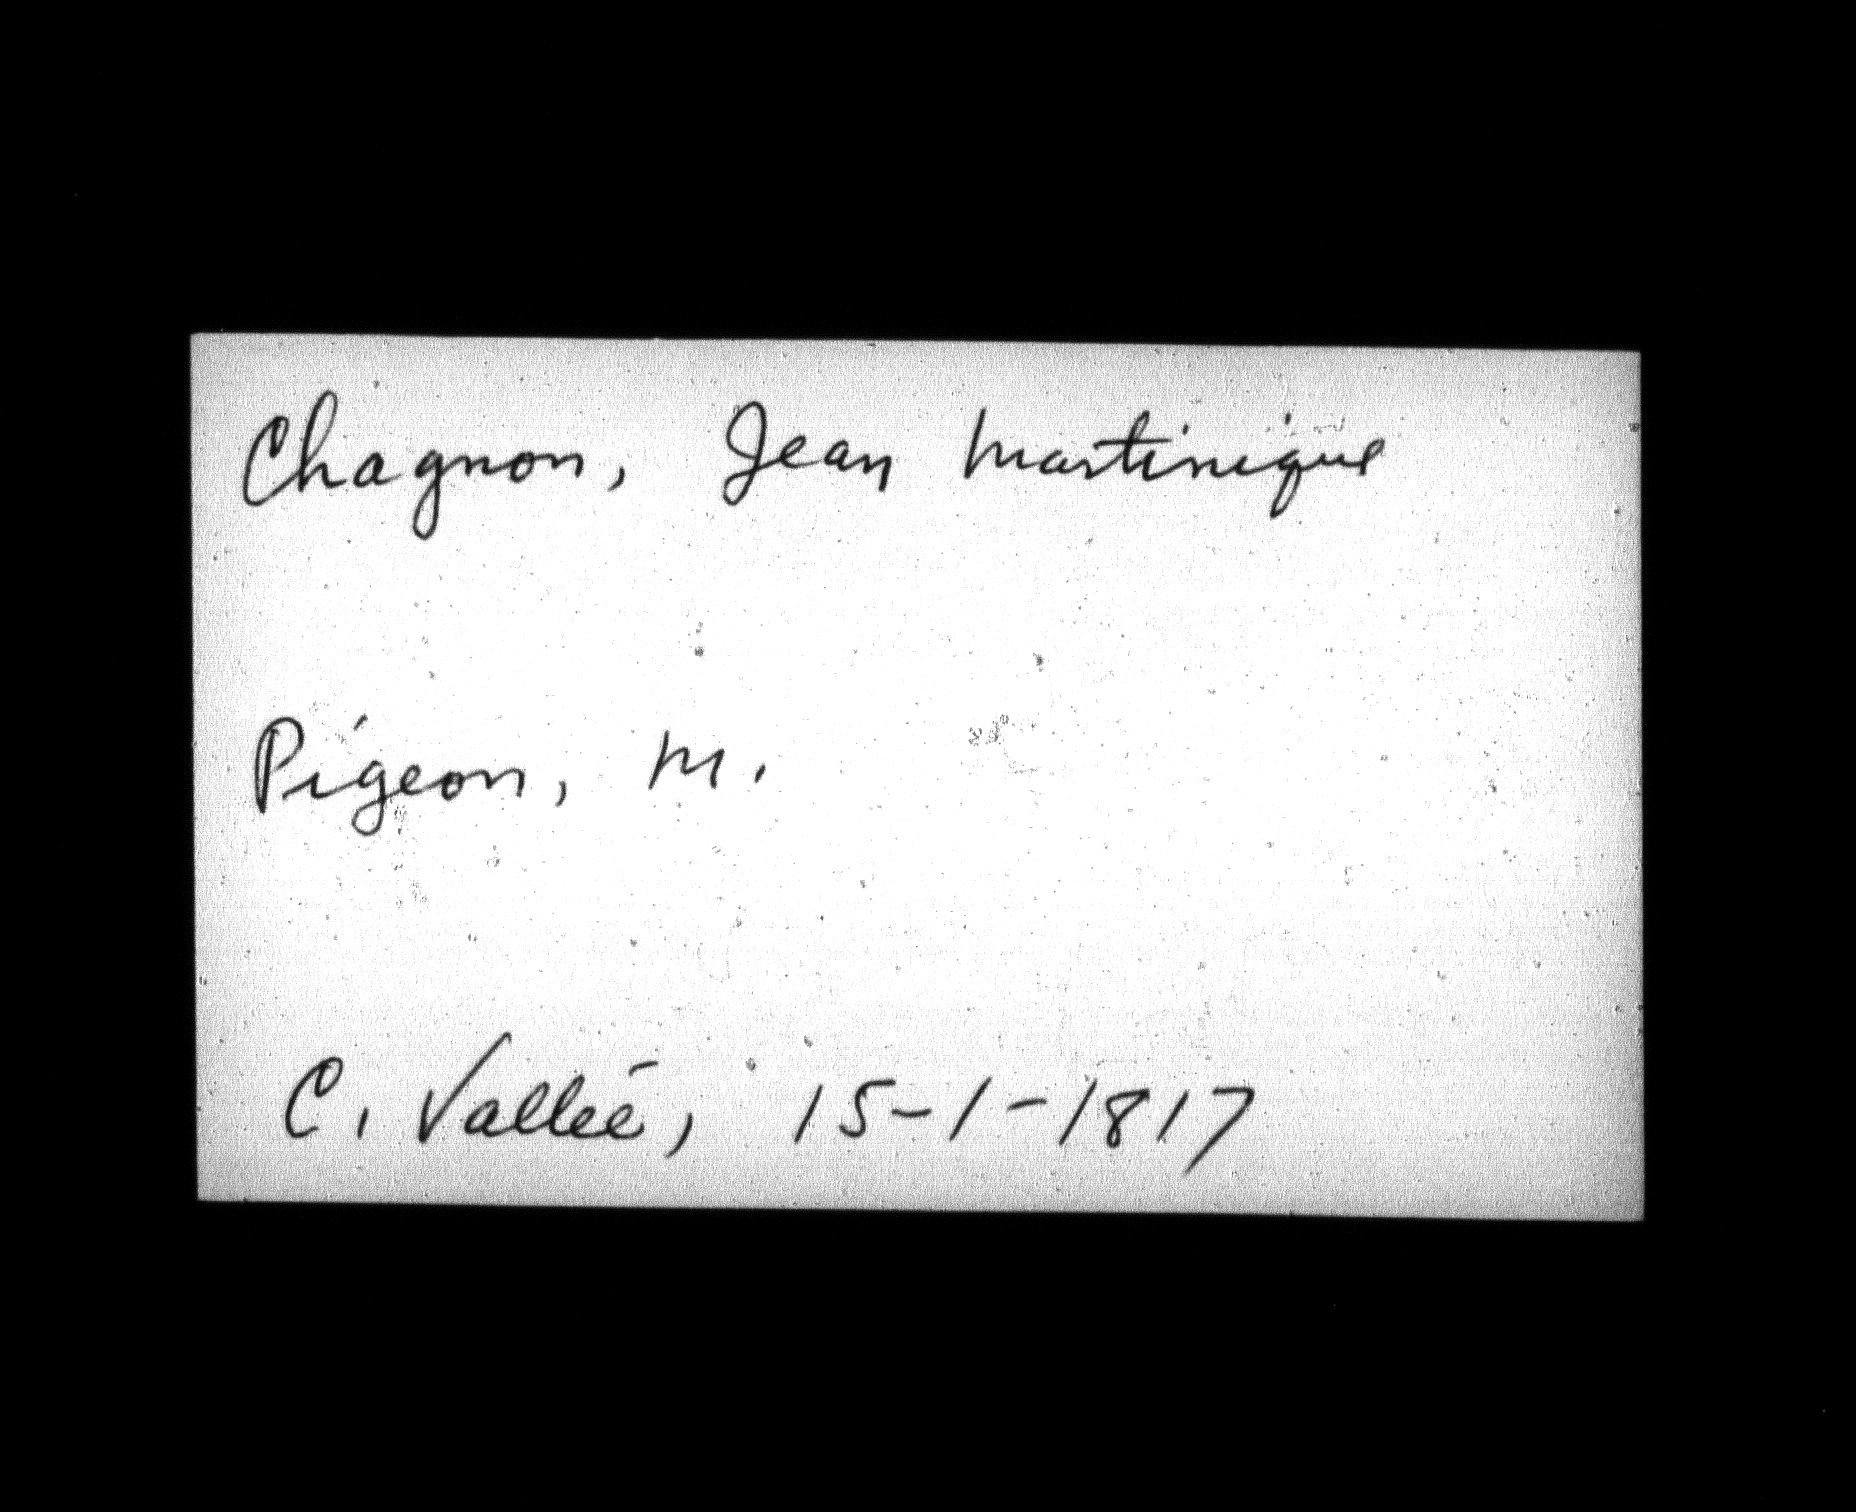 Chagnon, Jean Martinique
Pigeon, M.
C. Vallée, 15-1-1817